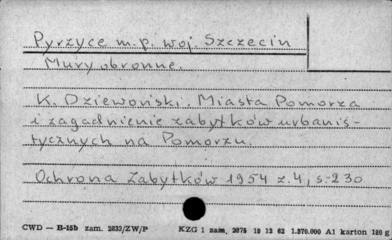 Pyrzyce m.p. woj. Szczecin
Mury obronne.
K. Dziewoński. Miasta Pomorza
i zagadnienie zabytków urbanis-
tycznych na Pomorzu.
Ochrona Zabytków 1954 z.4, s.230
CWD — B-15b zam. 2833/ZW/P KZG 1 zam. 2875 19 12 62 1.570.000 A1 karton 180 g